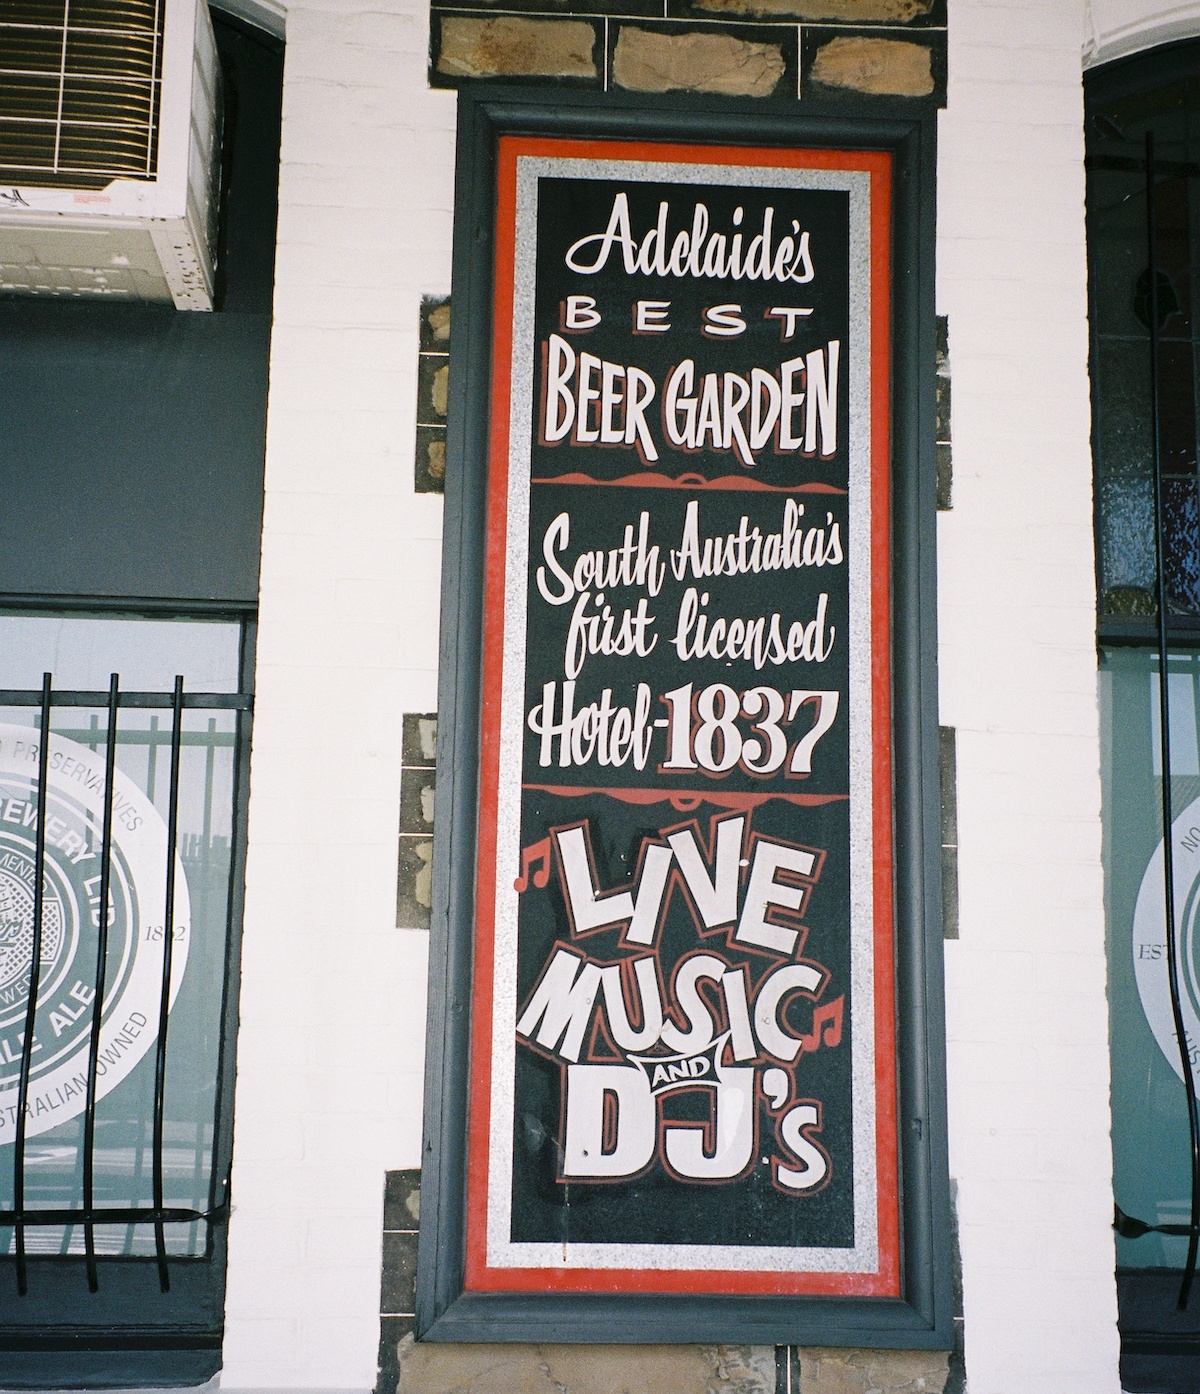 Adelaide's
BEST
BEER GARDEN
South Australia's
first licensed
Hotel-1837
LIVE
MUSIC
AND
DJ's
PRESERVATIVES
BREWERY LTD
ALE ALE
AUSTRALIAN OWNED
NO
EST